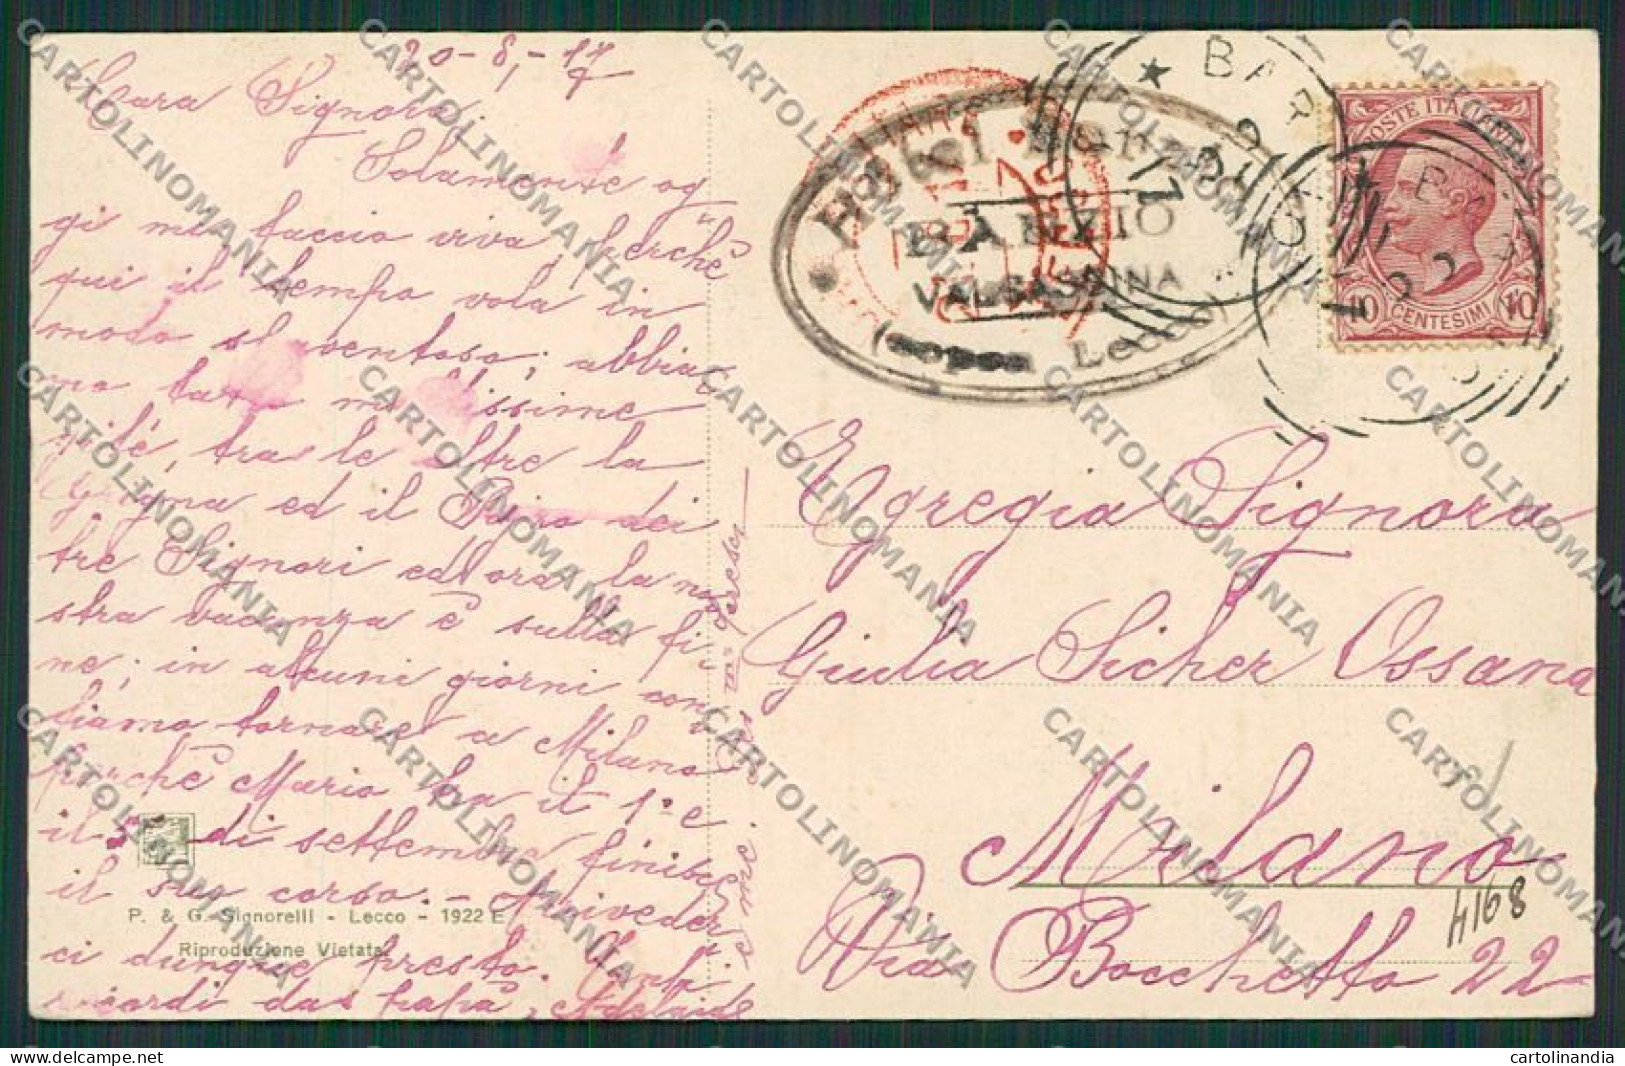 20-8,-17
Cara Signora,
Solamente og
gi mi faccio viva, perchè
qui il tempo vola in
modo sì ventoso; abbia
mo fatto moltissime
gite, tra le altre la
Grigna ed il Pizzo dei
tre Signori ed ora la no
stra vacanza è sulla fi
ne; in alcuni giorni con
tiamo tornare a Milano
perchè Mario tra il 1° e
il 5 di settembre finisce
il suo corso. - Arriveder
ci dunque presto.
ricordi da papà, Adelaide
P. & G. Signorelli - Lecco - 1922 E
Riproduzione Vietata
Hotel
BARZIO
VALSASSINA
(sopra Lecco)
BAR
POSTE ITALIANE
10 CENTESIMI 10
Egregia Signora
Giulia Sicher Ossana
Milano
Via Bocchetto 22
4168
CARTOLINOMANIA
cartolinandia